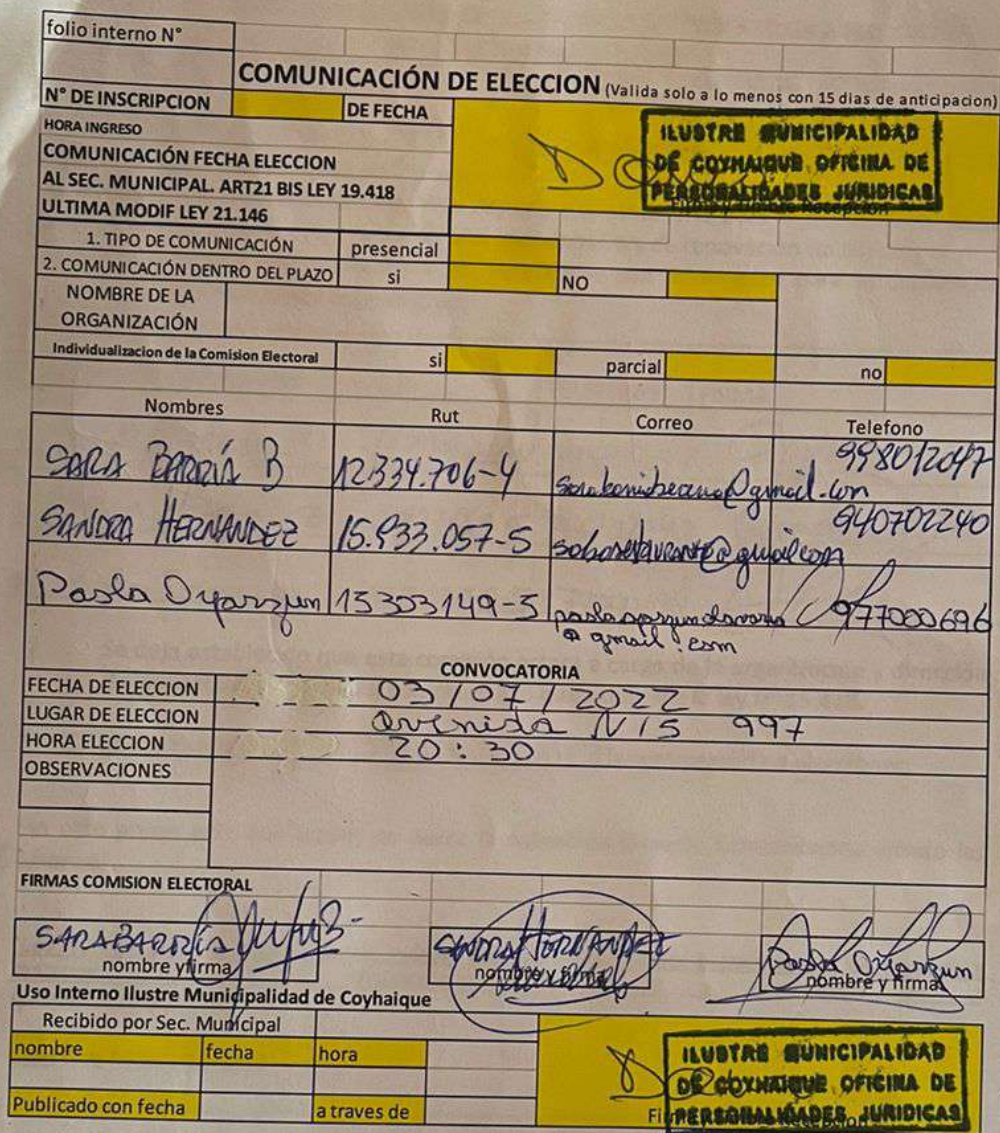 folio interno N°
COMUNICACIÓN DE ELECCION (Valida solo a lo menos con 15 dias de anticipacion)
N° DE INSCRIPCION DE FECHA
HORA INGRESO
COMUNICACIÓN FECHA ELECCION
AL SEC. MUNICIPAL. ART21 BIS LEY 19.418
ULTIMA MODIF LEY 21.146
ILUSTRE MUNICIPALIDAD
DE COYHAIQUE OFICINA DE
PERSONALIDADES JURIDICAS
1. TIPO DE COMUNICACIÓN presencial
2. COMUNICACIÓN DENTRO DEL PLAZO si NO
NOMBRE DE LA
ORGANIZACIÓN
Individualizacion de la Comision Electoral si parcial no
Nombres Rut Correo Telefono
SARA BARRÍA B 12.334.706-4 998012047
SANDRA HERNANDEZ 15.933.057-5 940702240
Paola Oyarzun 15303149-5 977000696
@ gmail.com
CONVOCATORIA
FECHA DE ELECCION 03/07/2022
LUGAR DE ELECCION avenida N15 997
HORA ELECCION 20:30
OBSERVACIONES
FIRMAS COMISION ELECTORAL
SARA BARRÍA SANDRA HERNANDEZ Paola Oyarzun
nombre y firma nombre y firma nombre y firma
Uso Interno Ilustre Municipalidad de Coyhaique
Recibido por Sec. Municipal
nombre fecha hora
Publicado con fecha a traves de
ILUSTRE MUNICIPALIDAD
DE COYHAIQUE OFICINA DE
PERSONALIDADES JURIDICAS